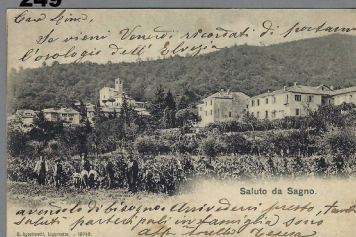 249
Caro Gino,
Se vieni Venerdì ricordati di portarmi
l'orologio dell'
Saluto da Sagno.
avendolo di bisogno. Arrivederci presto, tanti
saluti part in famiglia sono
aff.
10740.